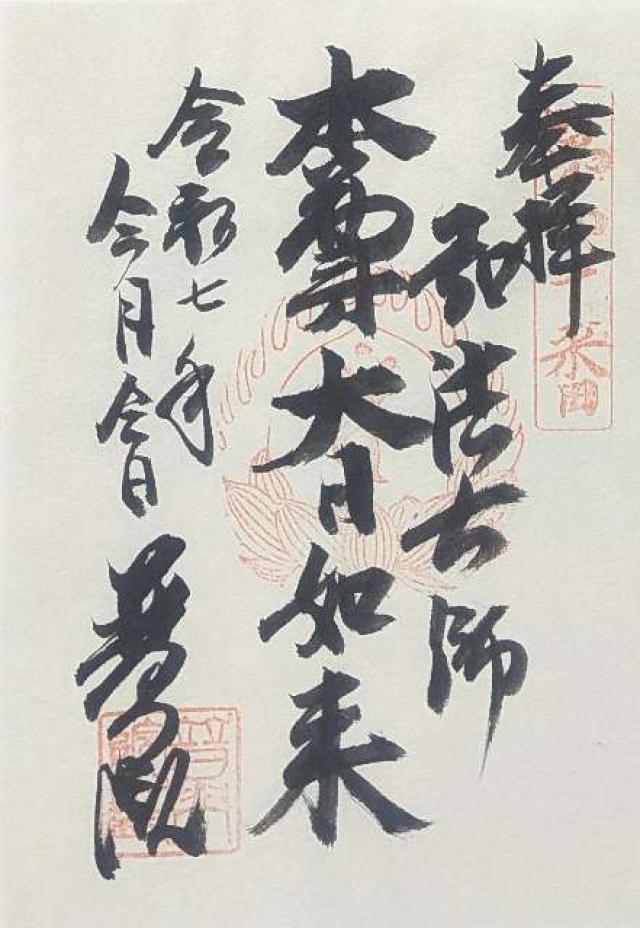 奉拝
弘法大師
本尊大日如来
令和七年
今月今日